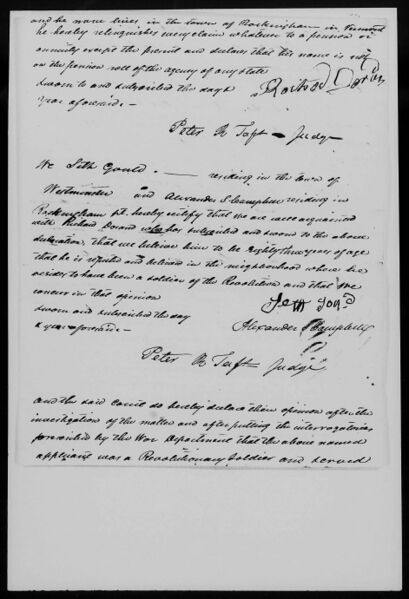 and he now lives in the town of Rockingham in Vermont
he hereby relinquishes every claim whatever to a pension or
annuity except the present and declares that his name is not
on the pension roll of the agency of any state
Sworn to and subscribed the day &
year aforesaid —
Peter R Taft — Judge
We Seth Gould — residing in the town of
Westminster and Alexander S Campbell residing in
Rockingham Vt. hereby certify that we are well acquainted
with Richard who has subscribed and sworn to the above
declaration, that we believe him to be eighty three years of age
that he is reputed and believed in the neighborhood where he
resides to have been a soldier of the Revolution and that we
concur in that opinion
Sworn and subscribed the day
& year aforesaid —
Seth
Alexander S Campbell
Peter R Taft Judge
And the said Court do hereby declare their opinion after the
investigation of the matter and after putting the interrogatories
prescribed by the War Department that the above named
applicant was a Revolutionary soldier and served